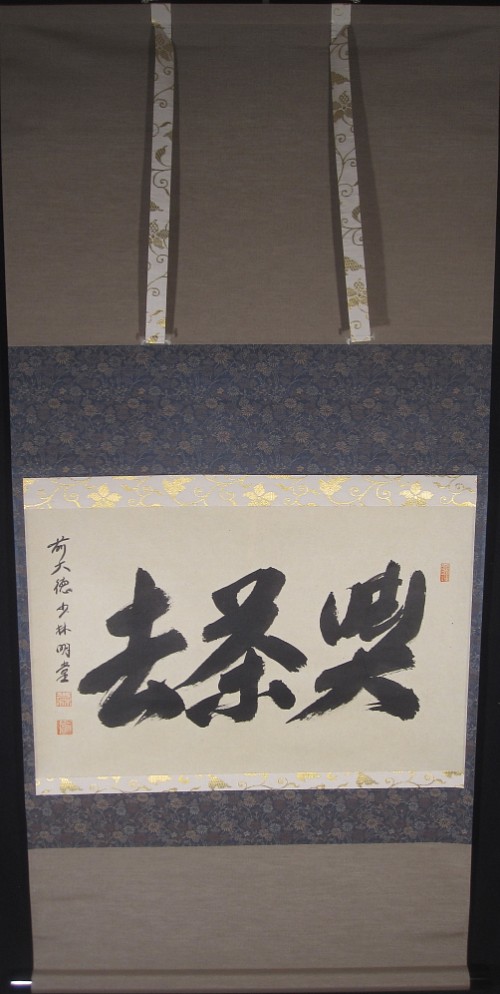 喫茶去
前大徳少林明堂